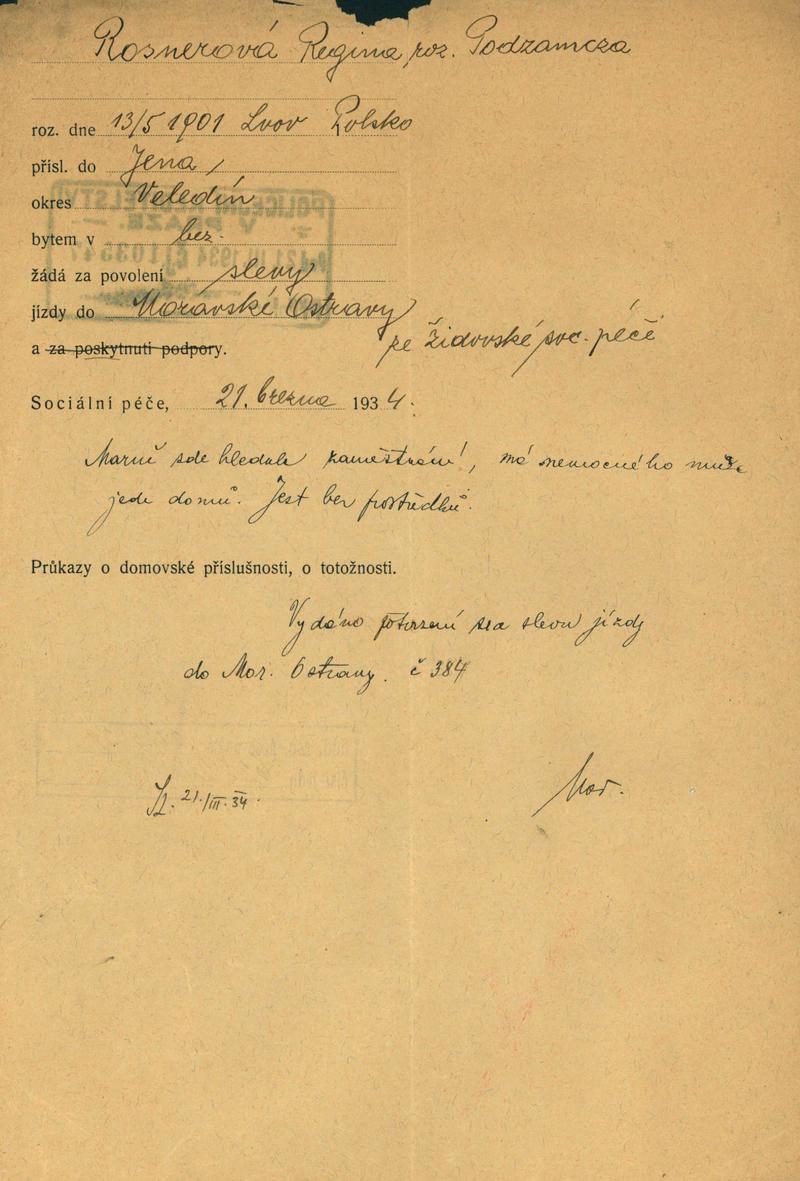 Rosnerová Regina roz. Podzamcza
roz. dne 13/5 1901 Lvov Polsko
přísl. do Jena,
okres Veledín
bytem v bez
žádá za povolení slevy
jízdy do Morávské Ostravy
a za poskytnutí podpory. ze židovské soc. péče
Sociální péče, 21. března 1934.
Marně zde hledala zaměstnání, má nemocného muže
jede domů. Jest bez prostředků.
Průkazy o domovské příslušnosti, o totožnosti.
Vydáno potvrzení na slevu jízdy
do Mor. Ostravy. č 384
21./III. 34.